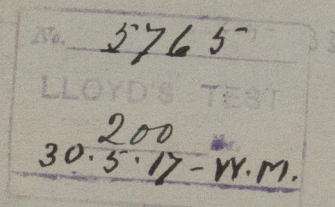 No. 5765
LLOYD'S TEST
200
30.5.17 - W.M.